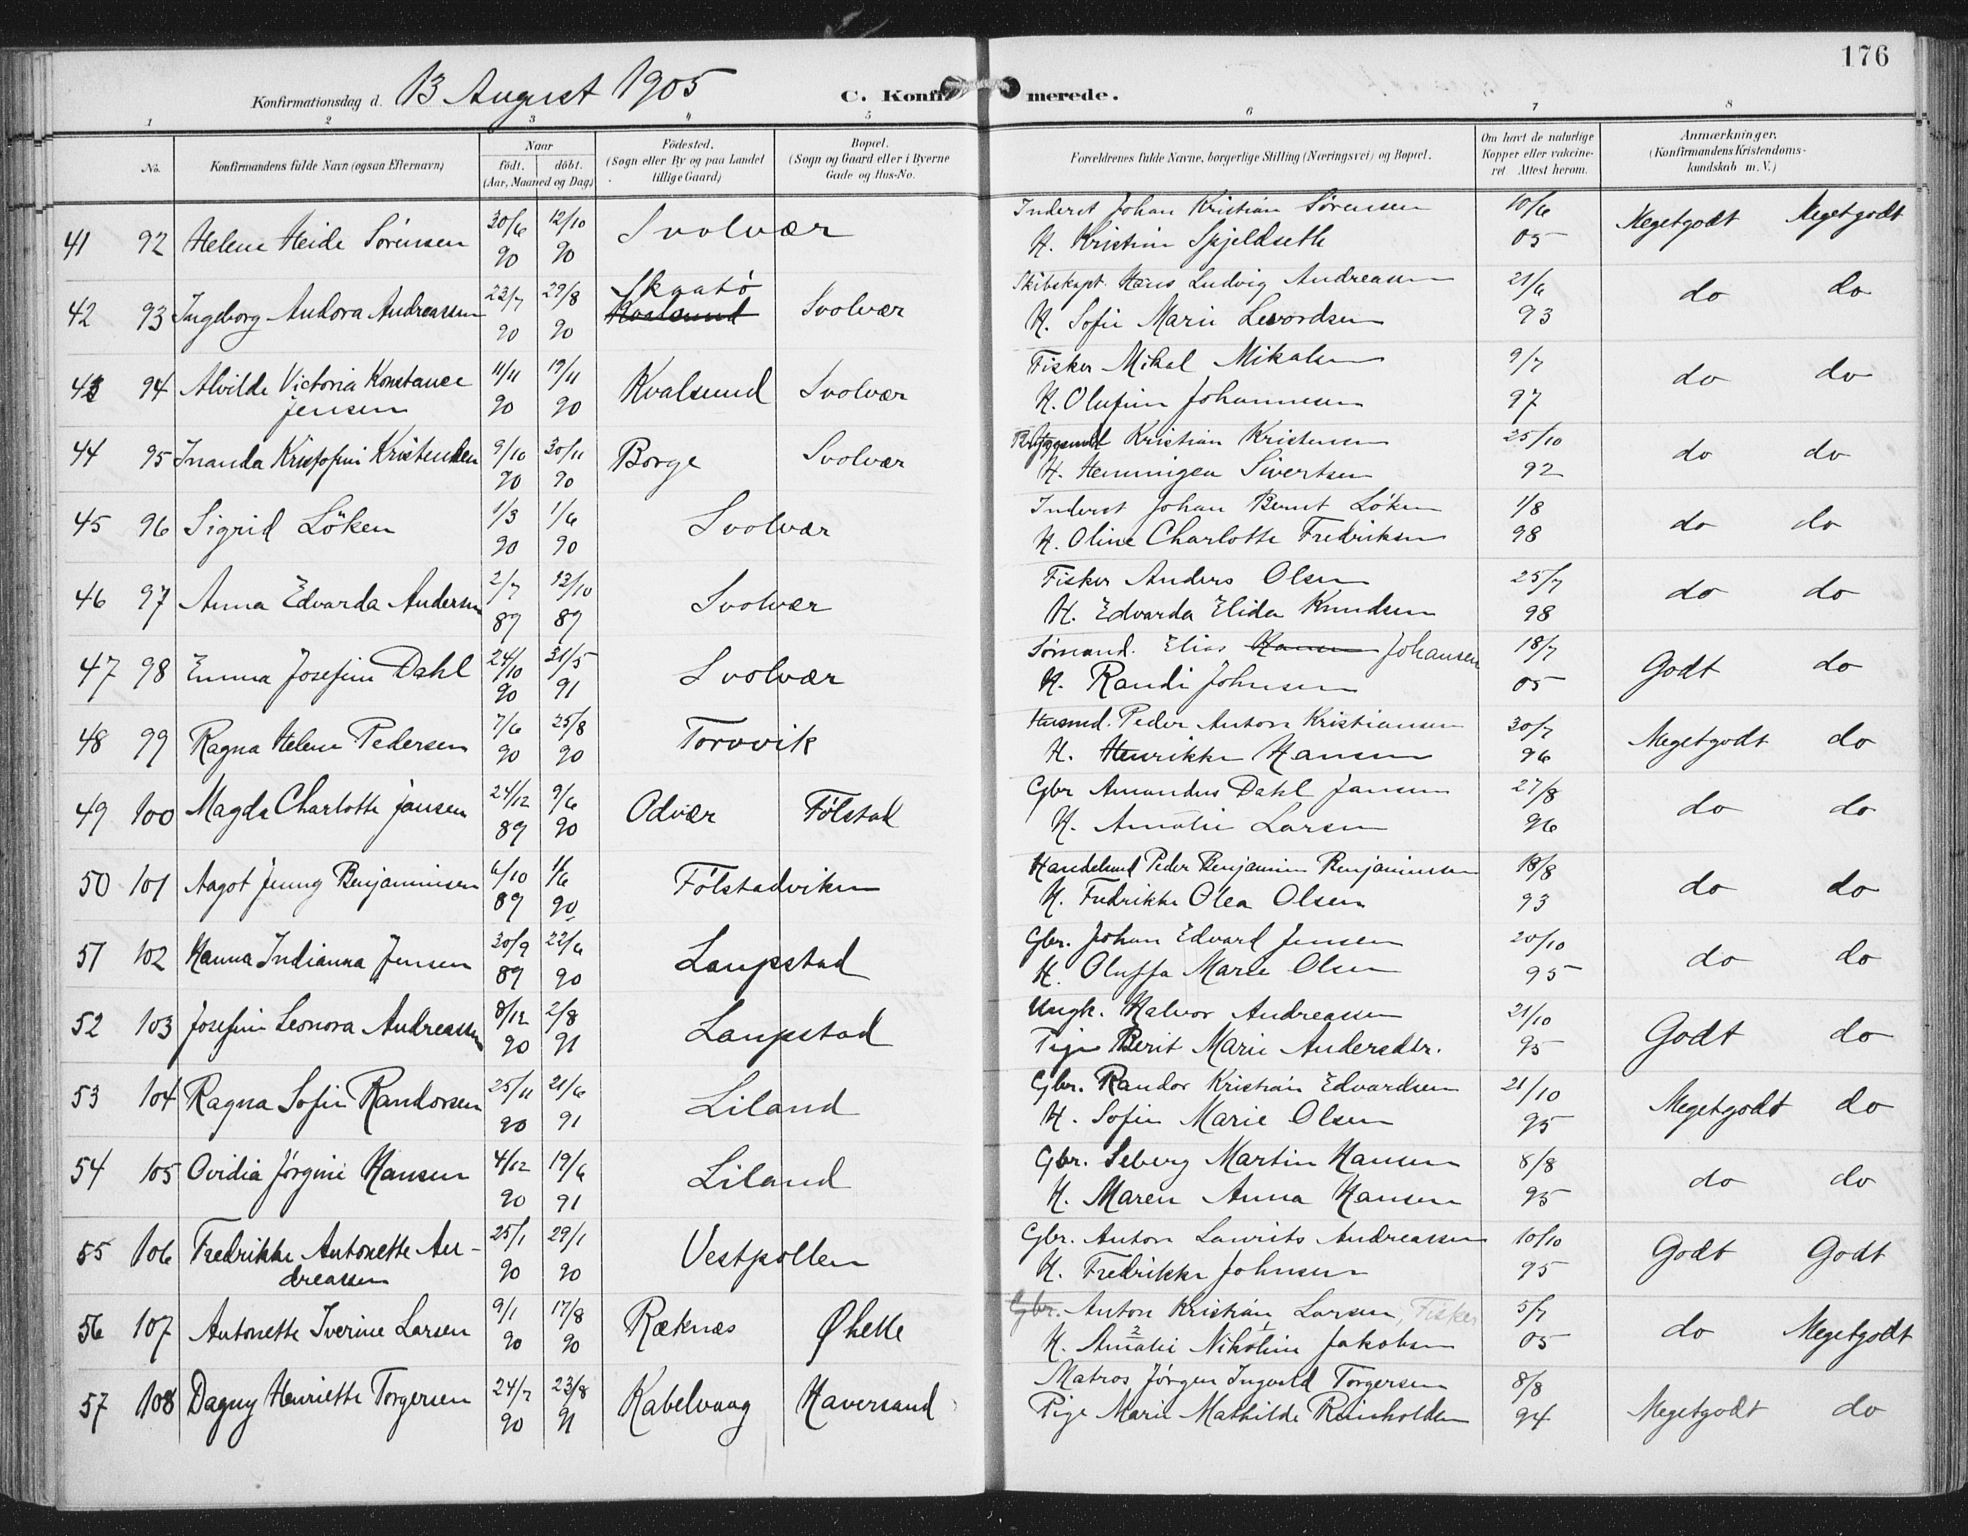 176
Konfirmationsdag d. 13 August 1905 C. Konfirmerede.
1 2 3 4 5 6 7 8
No. Konfirmandens fulde Navn (ogsaa Efternavn) Naar født. døbt. (Aar, Maaned og Dag) Fødested. (Sogn eller By og paa Landet tillige Gaard) Bopæl. (Sogn og Gaard eller i Byerne Gade og Hus-No. Forældrenes fulde Navne, borgerlige Stilling (Næringsvei) og Bopæl. Om havt de naturlige Kopper eller vakcineret Attest herom. Anmærkninger. (Konfirmandens Kristendomskundskab m. V.)
41 92 Helene Heide Sörensen 30/6 90 12/10 90 Svolvær Inderst Johan Kristian Sørensen 10/6 05 Megetgodt Megetgodt
H. Kristine Spjeldseth
42 93 Ingeborg Andora Andreassen 23/7 90 29/8 90 Skaatö Kvalsund Svolvær Skibskapt. Hans Ludvig Andreassen 21/6 93 do do
H. Sofie Marie
43 94 Alvilde Victoria Konstance 11/11 90 19/11 90 Kvalsund Svolvær Fisker Mikal Mikalsen 9/7 97 do do
Jensen H. Olufine Johannesen
44 95 Kristensen 9/10 90 30/11 90 Borge Svolvær Kristian Kristensen 25/10 92 do do
H. Henningea Sivertsen
45 96 Sigrid Löken 1/3 90 1/6 90 Svolvær Inderst Johan Bernt Löken 1/8 98 do do
H. Oline Charlotte Fredriksen
46 97 Anna Edvarda Andersen 2/7 89 13/10 89 Svolvær Fisker Anders Olsen 25/7 98 do do
H. Edvarda Elida Knudsen
47 98 Emma Josefine Dahl 24/10 90 31/5 91 Svolvær Sømand. Elias Hansen Johansen 18/7 05 Godt do
H. Randi Johnsen
48 99 Ragna Helene Pedersen 7/6 90 25/8 90 Torvvik Husmd. Peder Anton Kristiansen 30/7 96 Megetgodt do
H. Henrikke Hansen
49 100 Magda Charlotte Jansen 24/12 89 9/6 90 Odvær Følstad Gbr Amandus Dahl Jansen 27/8 96 do do
H. Amalie Larsen
50 101 Aagot Jenny Benjaminsen 6/10 89 1/6 90 Følstadviken Handelsmd Peder Benjamin Benjaminsen 18/8 93 do do
H. Fredrikke Olea Olsen
51 102 Hanna Indianna Jensen 30/9 89 22/6 90 Laupstad Gbr. Johan Edvard Jensen 20/10 95 do do
H. Oluffa Marie Olsen
52 103 Josefine Leonora Andreassen 8/12 90 2/8 91 Laupstad Ungk. Halvor Andreassen 21/10 95 Godt do
Pige Berit Marie Andersdtr.
53 104 Ragna Sofie Randorsen 25/11 90 21/6 91 Liland Gbr. Randor Kristian Edvardsen 21/10 95 Megetgodt do
H. Sofie Marie Olsen
54 105 Ovidia Jørgine Hansen 4/12 90 19/6 91 Liland Gbr. Seberg Martin Hansen 8/8 95 do do
H. Maren Anna Hansen
55 106 Fredrikke Antonette An- 25/1 90 29/1 90 Vestpollen Gbr. Anton Laurits Andreassen 10/10 95 Godt Godt
dreassen H. Fredrikke Johnsen
56 107 Antonette Iverine Larsen 9/1 90 17/8 90 Ræknæs Øhelle Gbr. Anton Kristian Larsen, Fisker 5/7 05 do Megetgodt
H. Amalie Nikoline Jakobsen
57 108 Dagny Henriette Torgersen 24/7 90 23/8 91 Kabelvaag Haversand Matros Jørgen Ingvald Torgersen 8/8 94 Megetgodt do
Pige Marie Mathilde Reinholdsen